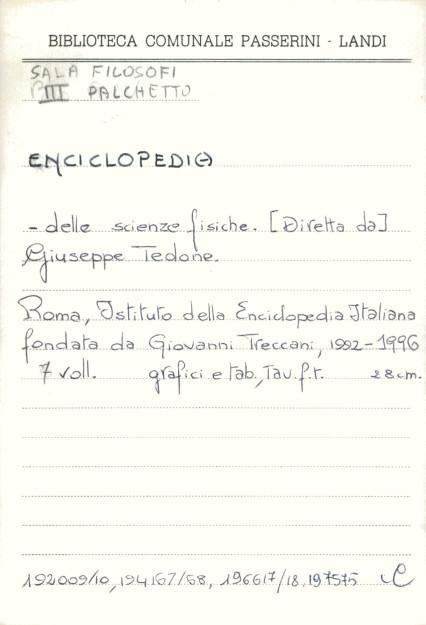 BIBLIOTECA COMUNALE PASSERINI - LANDI
SALA FILOSOFI
III PALCHETTO
ENCICLOPEDIA
- delle scienze fisiche. [Diretta da]
Giuseppe Tedone.
Roma, Istituto della Enciclopedia Italiana
fondata da Giovanni Treccani, 1992-1996
7 voll. grafici e tab., Tav. f. t. 28 cm.
192009/10, 194167/68, 196617/18, 197575